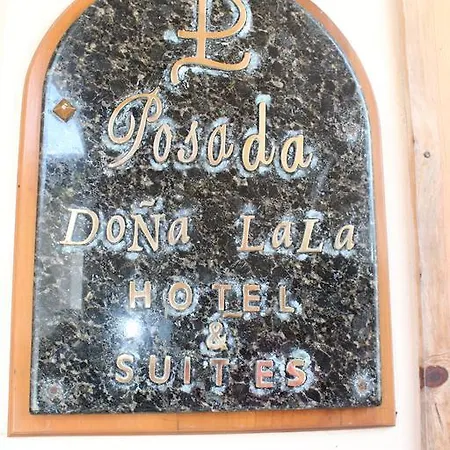 Posada
Doña Lala
HOTEL
&
SUITES